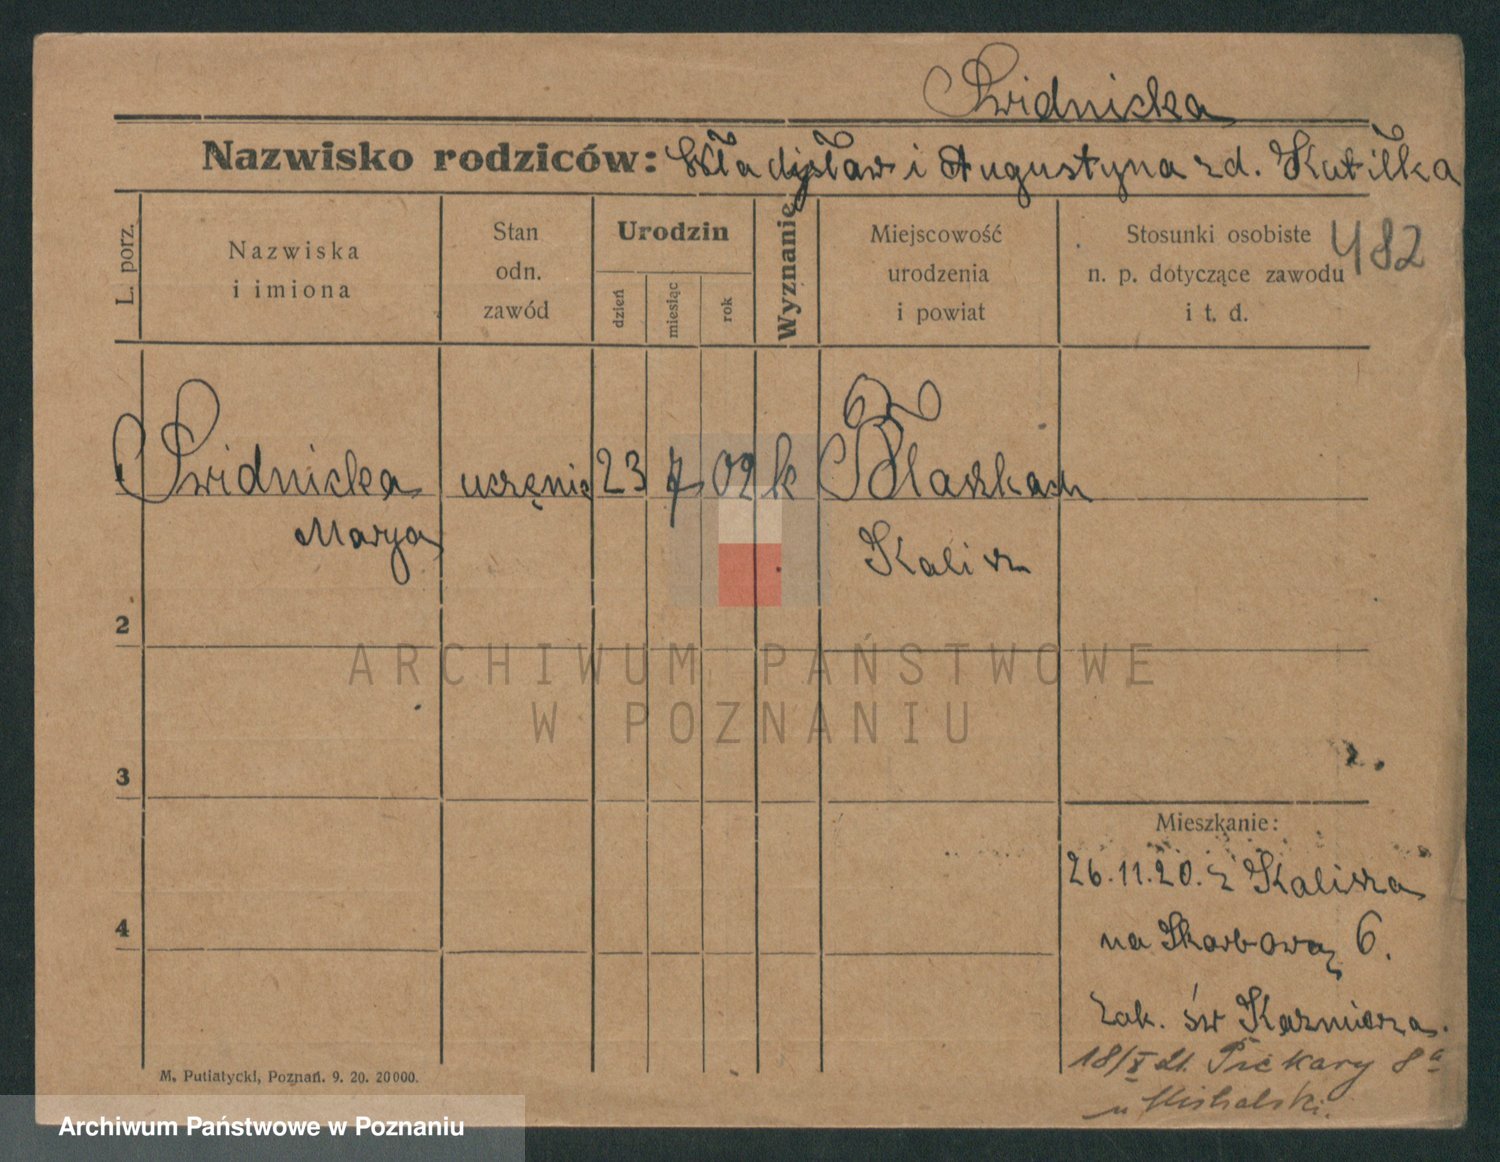 Swidnicka
Nazwisko rodziców: Władysław i Augustyna zd. Kutiłka
L. porz.
Nazwiska
i imiona
Stan
odn.
zawód
Urodzin
dzień
miesiąc
rok
Wyznanie
Miejscowość
urodzenia
i powiat
Stosunki osobiste
n. p. dotyczące zawodu
i t. d.
482
Swidnicka uczenic 23 7 02 k Błaszkach
Marya Kalisz
2
ARCHIWUM PAŃSTWOWE
W POZNANIU
3
Mieszkanie:
26.11.20. z Kalisza
4
na Skarbową 6.
zak. św Kazmierza.
18/X 21. Piekary 8a
u
M. Putiatycki, Poznań. 9. 20. 20000.
Archiwum Państwowe w Poznaniu